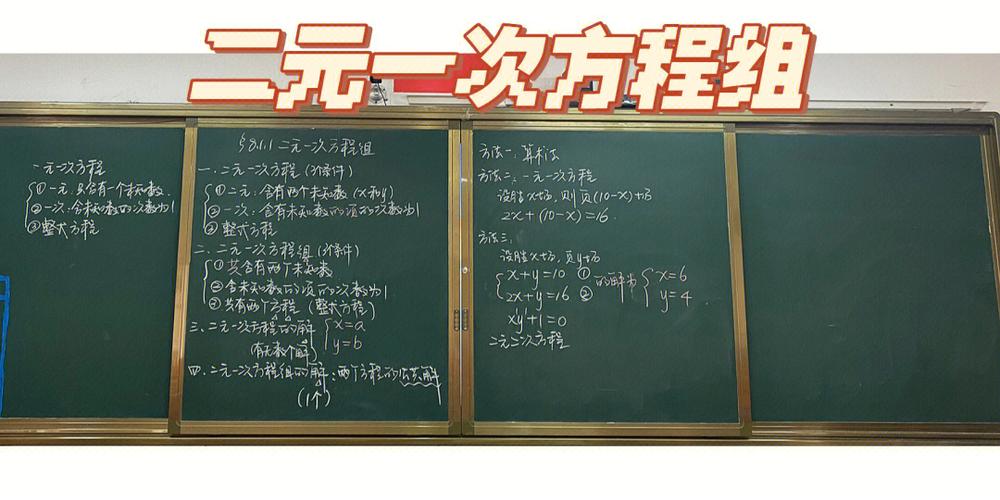 二元一次方程组
一元一次方程
①一元:只含有一个未知数.
②一次:含未知数的次数为1
③整式方程
§8.1.1 二元一次方程组
一.二元一次方程(3条件)
①二元:含有两个未知数(x和y)
②一次:含有未知数的项的次数为1
③整式方程
二.二元一次方程组(3条件)
①共含有两个未知数
②含未知数的项的次数为1
③共有两个方程(整式方程)
三.二元一次方程的解 {x=a
(有无数个解) y=b
四.二元一次方程组的解:两个方程的公共解
(1个)
方法一:算术法
方法二:一元一次方程
设胜x场,则负(10-x)场
2x+(10-x)=16.
方法三:
设胜x场,负y场
{x+y=10 ① 的解为 {x=6
2x+y=16 ② y=4
xy+1=0
二元二次方程